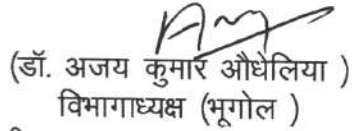 (डॉ. अजय कुमार औधेलिया )
विभागाध्यक्ष (भूगोल )